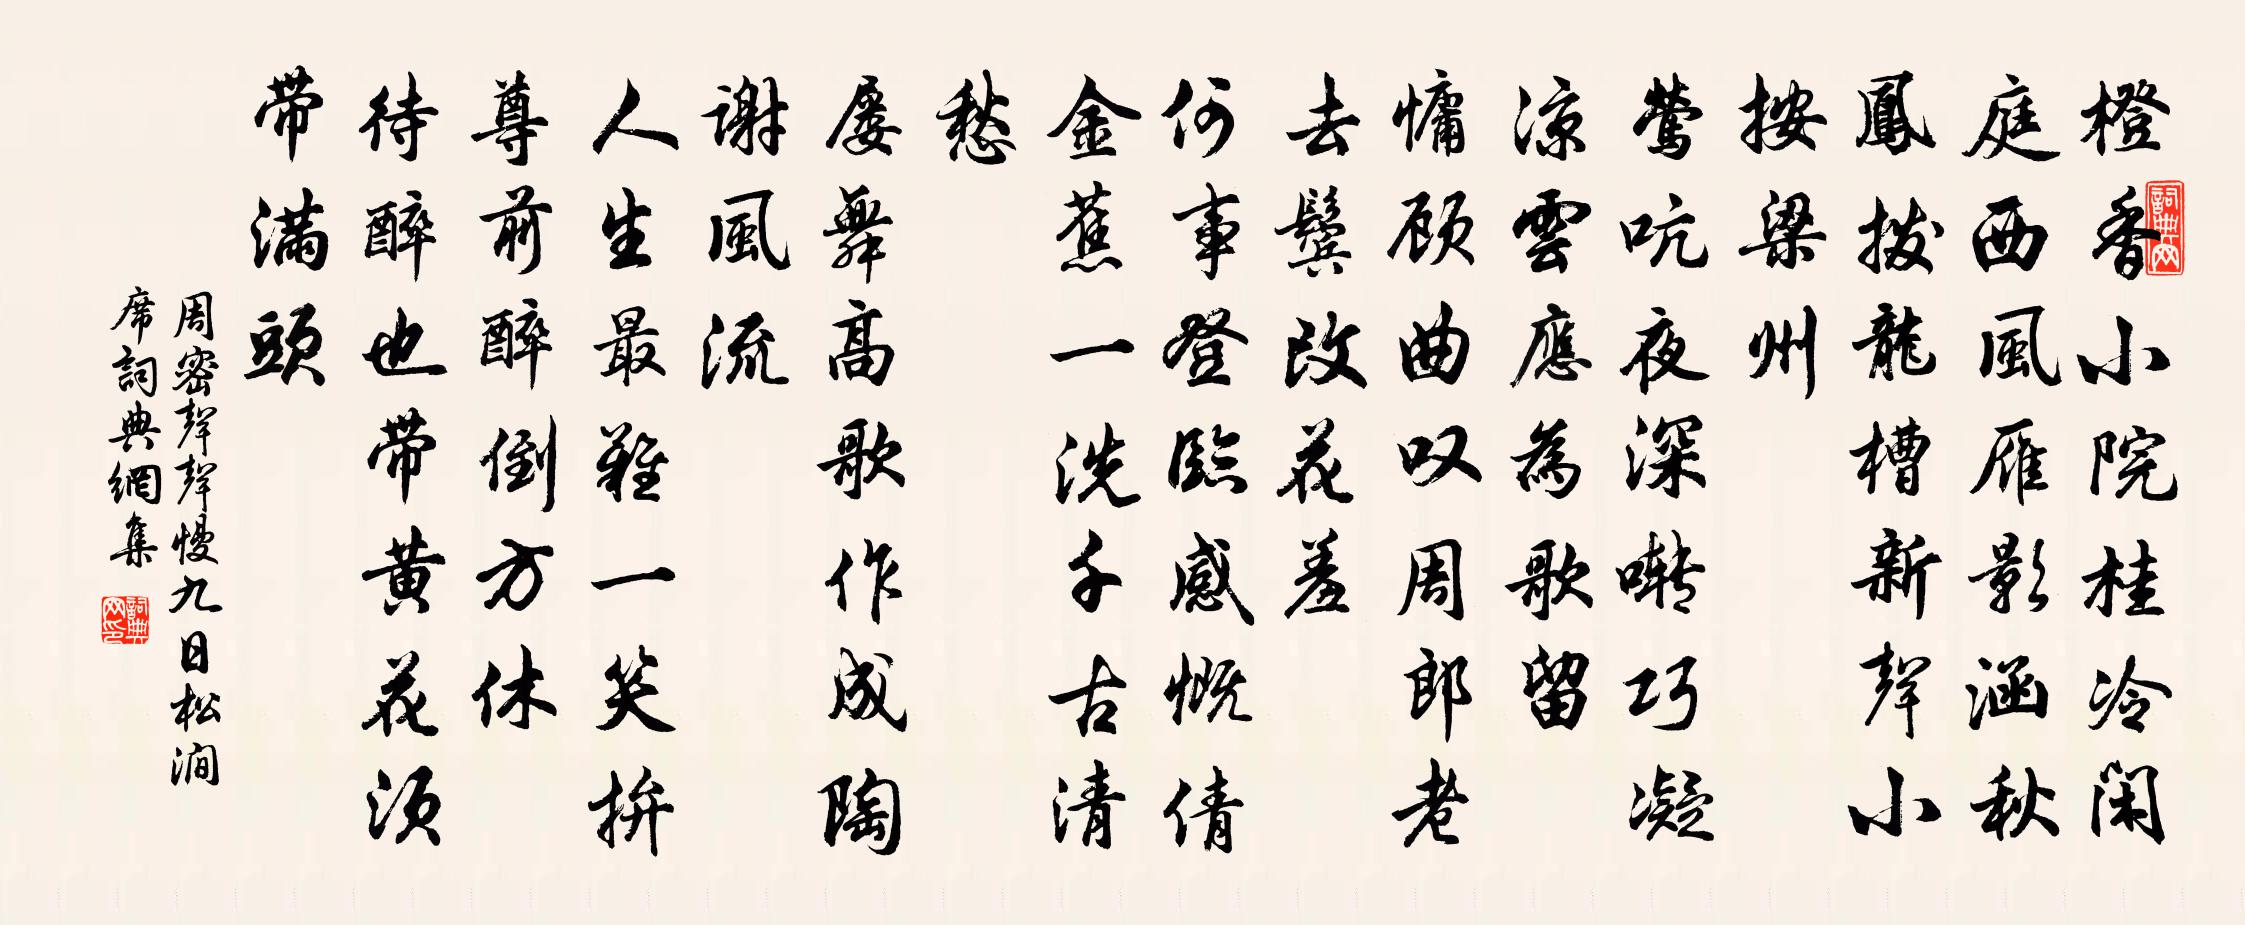 橙香小院桂冷闲
庭西風雁影涵秋
鳳撥龍槽新聲小
按梁州
鶯吭夜深囀巧凝
凉雲應為歌留
慵顾曲叹周郎老
去鬓改花羞
何事登臨感慨倩
金蕉一洗千古清
愁
屡舞高歌作成陶
谢風流
人生最難一笑拚
尊前醉倒方休
待醉也带黄花须
带满頭
周密聲聲慢九日松澗
席詞典網集
詞典网
詞典网印